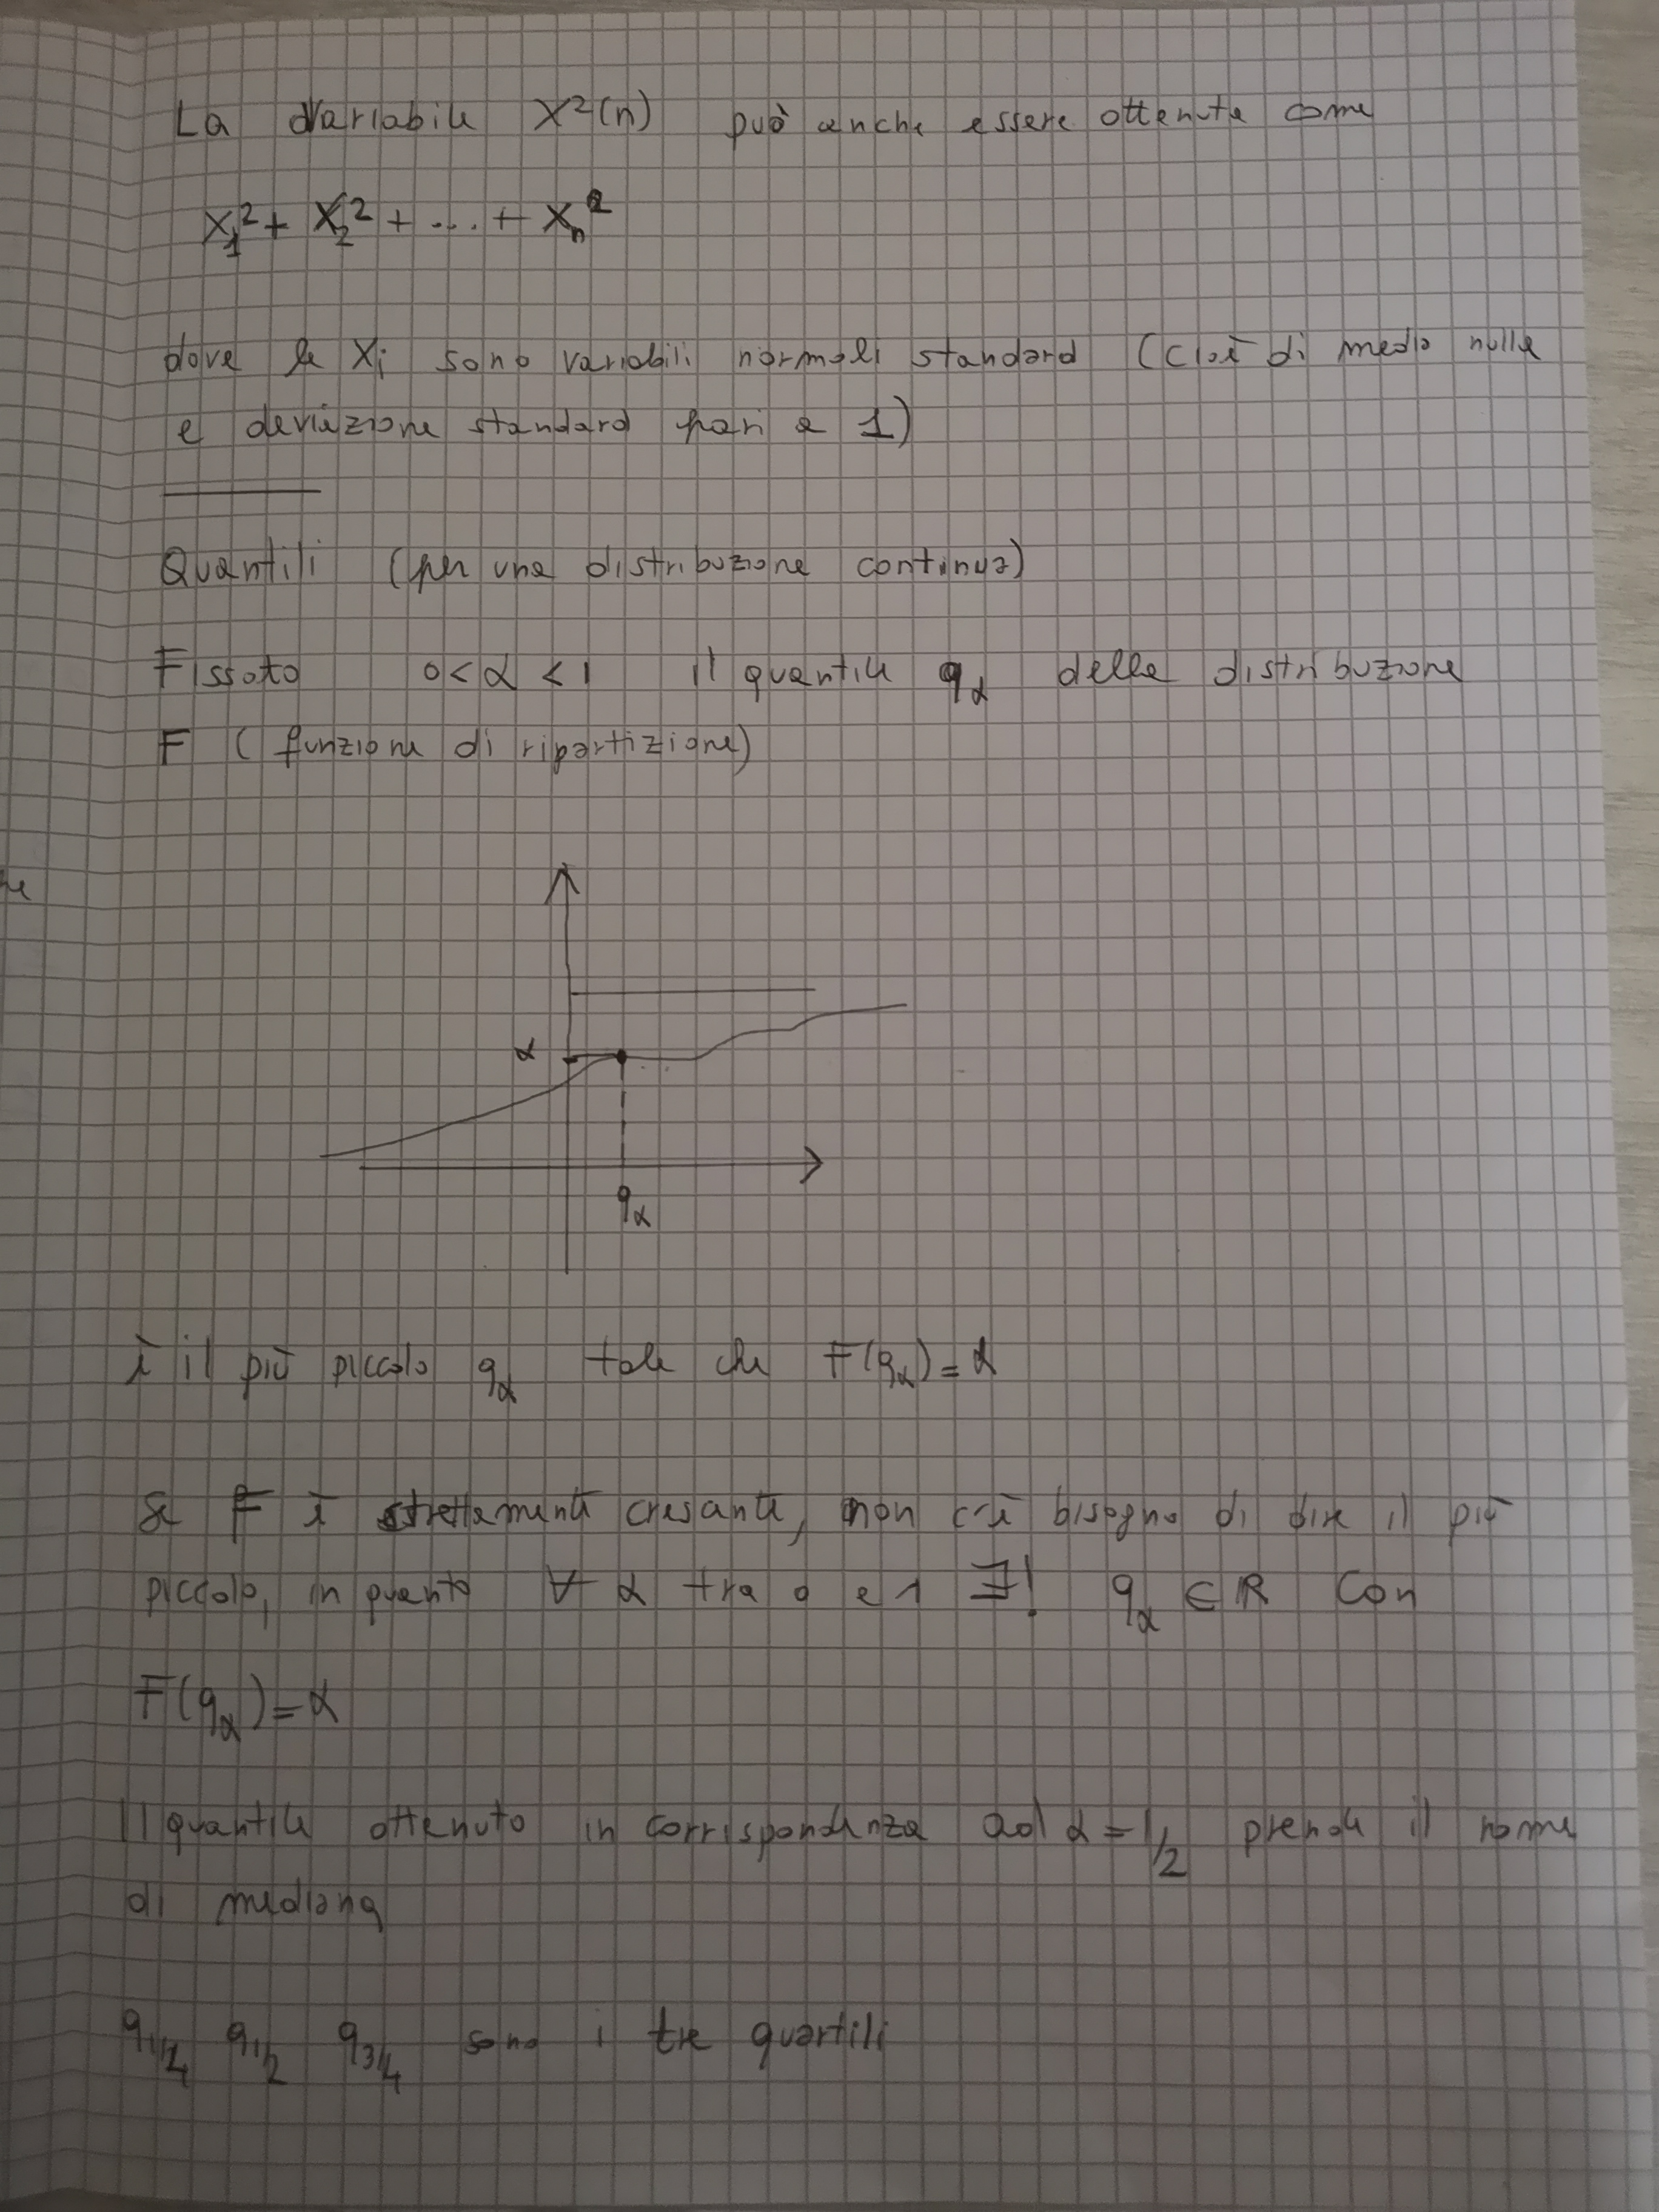 La variabile X²(n) può anche essere ottenuta come
X₁² + X₂² + .... + Xₙ²
dove le Xi sono variabili normali standard (cioè di media nulla
e deviazione standard pari a 1)
Quantili (per una distribuzione continua)
Fissato 0 < α < 1 il quantile qα della distribuzione
F (funzione di ripartizione)
α
qα
è il più piccolo qα tale che F(qα) = α
Se F è strettamente crescente, non c'è bisogno di dire il più
piccolo, in quanto ∀ α tra 0 e 1 ∃! qα ∈ ℝ con
F(qα) = α
Il quantile ottenuto in corrispondenza ad α = 1/2 prende il nome
di mediana
q1/4 q1/2 q3/4 sono i tre quartili